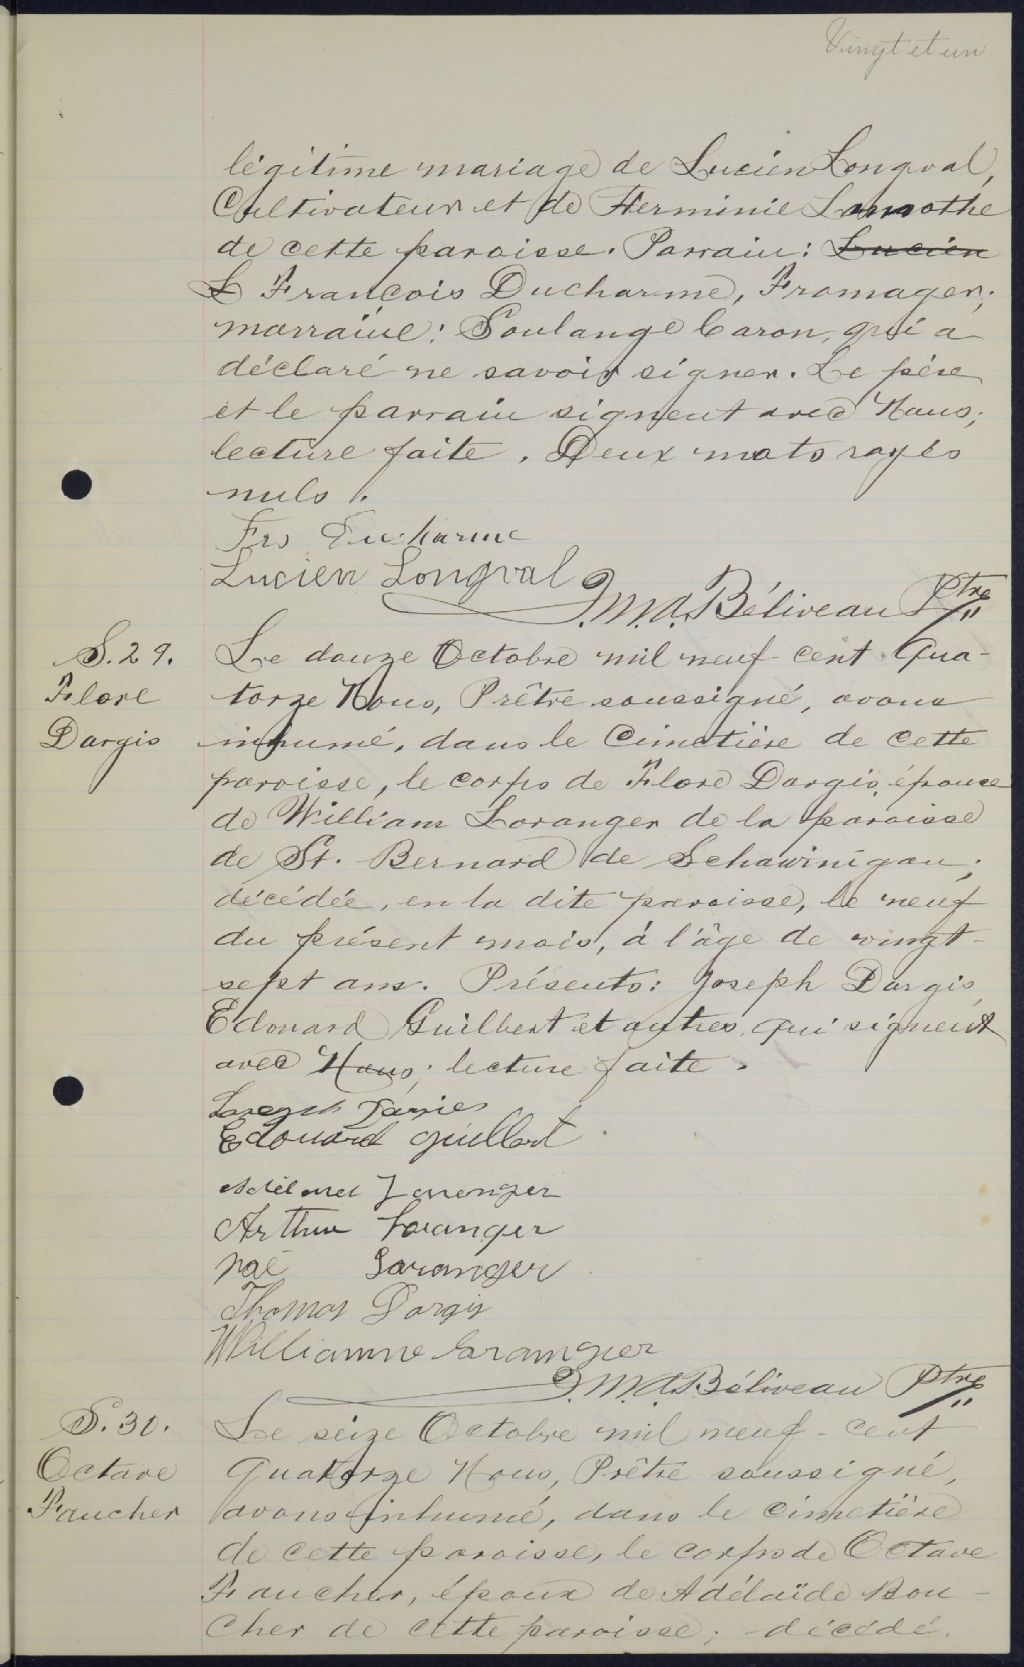 Vingt et un
légitime mariage de Lucien Longval,
Cultivateur et de Herminie Lamothe
de cette paroisse. Parrain: Lucien
L François Ducharme, Fromager;
marraine: Soulange Caron, qui a
déclaré ne savoir signer. Le père
et le parrain signent avec Nous,
lecture faite. Deux mots rayés
nuls.
Frs Ducharme
Lucien Longval
J.M.A. Béliveau Ptre
S. 29.
Flore
Dargis
Le douze Octobre mil neuf cent qua-
torze Nous, Prêtre soussigné, avons
inhumé, dans le Cimetière de cette
paroisse, le corps de Flore Dargis, épouse
de William Loranger de la paroisse
de St. Bernard de Schawinigan;
décédée, en la dite paroisse, le neuf
du présent mois, à l'âge de vingt-
sept ans. Présents: Joseph Dargis,
Edouard Guilbert et autres qui signent
avec Nous; lecture faite.
Edouard Guilbert
Loranger
Arthur Loranger
Noé Loranger
Thomas Dargis
Williamme Loranger
J.M.A. Béliveau Ptre
S. 30.
Octave
Faucher
Le seize Octobre mil neuf-cent
quatorze Nous, Prêtre soussigné,
avons inhumé, dans le cimetière
de cette paroisse, le corps de Octave
Faucher, époux de Adélaïde Bou-
cher de cette paroisse; décédé.